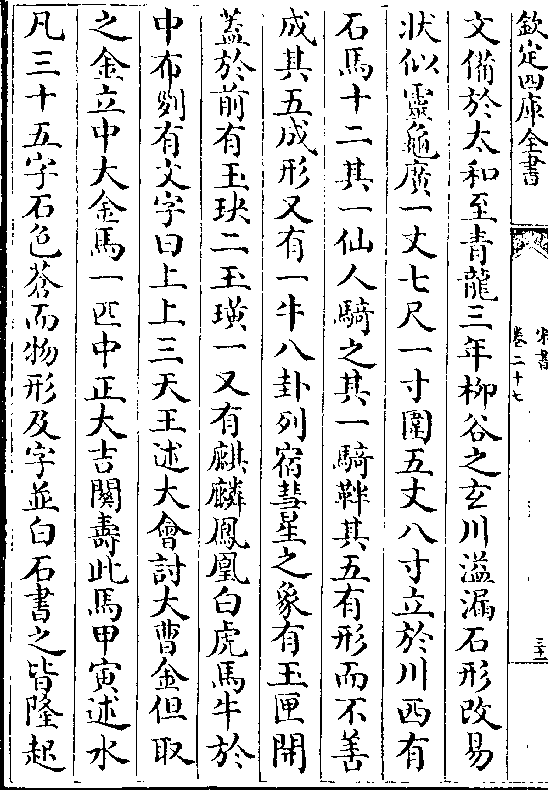 欽定四庫全書
宋書
卷二十七
三十二
文備於太和至青龍三年柳谷之玄川溢漏石形改易
狀似靈龜廣一丈七尺一寸圍五丈八寸立於川西有
石馬十二其一仙人騎之其一騎𩋾其五有形而不善
成其五成形又有一牛八卦列宿彗星之象有玉匣開
蓋於前有玉玦二玉璜一又有麒麟鳳凰白虎馬牛於
中布列有文字曰上上三天王述大會討大曹金但取
之金立中大金馬一匹中正大吉關壽此馬甲寅述水
凡三十五字石色蒼而物形及字並白石書之皆隆起